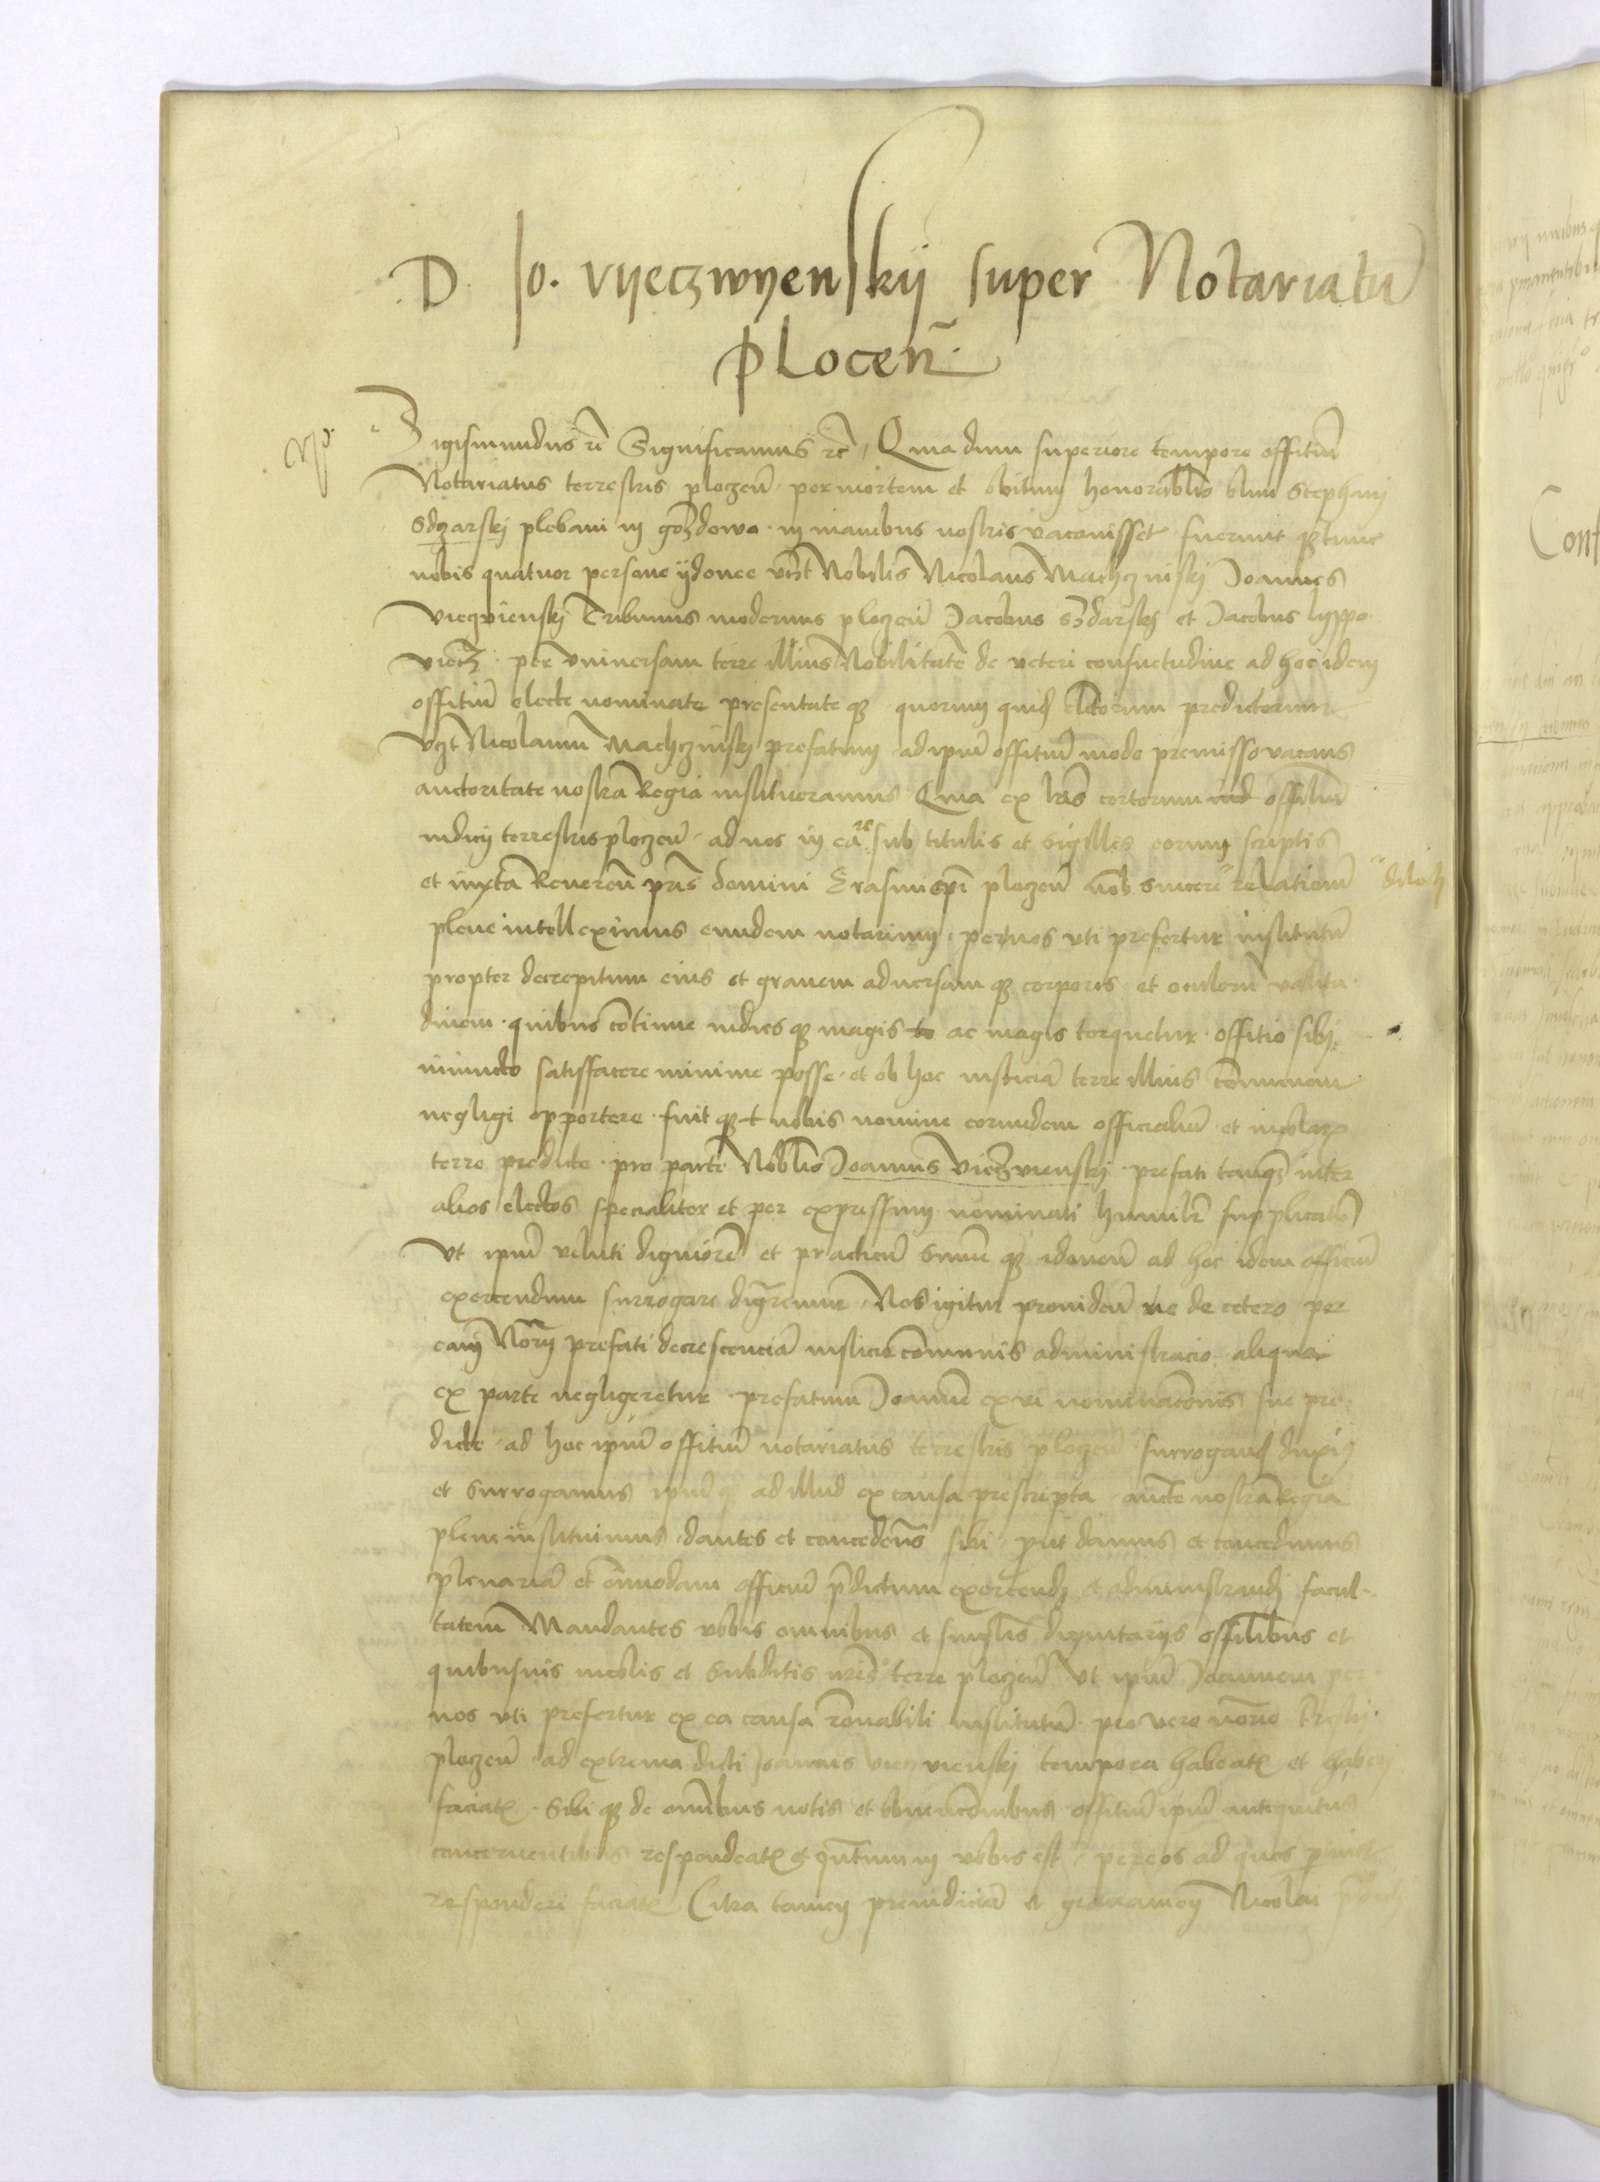 D. Jo. Vyeczwyenskij super Notariatu
Plocen̄.
Sigismundus rc̄ Significamus rc̄, Quia dum superiore tempore offitiū
Notariatus terrestris ploczen̄. per mortem et obitum honorabilis olim Stephani
Sdzarskj plebani in gozdowo. in manibus nostris vacauisset. fuerunt qz tunc
nobis quatuor persone ijdonee vtz̄ Nobilis Nicolaus Machczinskj Joannes
Vieczvienskj Tribunus modernus ploczen̄ Jacobus et Jacobus lyppo
vieczz. per vniuersam terre illius Nobilitatē de veteri consuetudine ad hoc idem
offitiū electe nominate presentate qz. quorum quid electorum predictorum
vtz̄ Nicolaum Machczinskj prefatum ad ipm̄ offitiū modo premisso vacans
auctoritate nostra Regia institueramus Quia ex lr̄is certorum offitialiū
iudicij terrestris ploczen̄. ad nos in ea re sub titulis et sigillis eorum scriptis
et iuxta Reueren̄ pr̄is domini Erasmi epī ploczen̄ nob. sincere " relationē " dilecti
plene intelleximus eundem notarium, per nos vti prefertur institutū
propter decrepitum eius et grauem aduersam qz corporis et oculorū valitu-
dinem. quibus cōtinue indies qz magis ac magis torquetur. offitio sibj
iniuncto satisfacere minime posse. et ob hoc iusticiā terre illius cōmunem
negligi opportere. fuit qz nobis nomine eorundem officialiū et incolarz
terre predicte. pro parte Noblis Joannis Vieczvienskj. prefati tamqz inter
alios electos specialiter et per expressum nominati humilr̄ supplicatū
Vt ipm̄ veluti digniorē et practicū idoneū ad hoc idem officiū
exercendum surrogare dignaremur. Nos igitur prouiden̄ ne de cetero per
eam Notarij prefati decrescenciā iusticie cōmunis administracio aliqua
ex parte negligeretur. prefatum Joannē ex vi nominacōnis sue pre-
dicte. ad hoc ipm̄ offitiū notariatus terrestris ploczen̄ surrogand duxim9
et surrogamus ipm̄ qz ad illud ex causa prescripta. aucte nostra Regia
plene instituimus. dantes et conceden̄s sibi. put damus et concedimus
plenariā et ōmodam officiū p̄dictum exercendj et administrandj facul-
tatem Mandantes vobis omnibus et singulis dignitarijs offitlibus et
quibusuis incolis et subditis nr̄is terre ploczen̄ Vt ipm̄ Joannem per
nos vti prefertur ex ea causa rōnabili institutū. pro vero notario trr̄stri
ploczen̄ ad extrema dicti Joannis Vieczvienskj tempora habeatis et haberi
faciatis. Sibi qz de omībus notis et obuencōnibus offitiū ipm̄ antiquitus
concernentibus respondeatis et qn̄tum in vobis est, per eos ad quos ptinet
responderi faciatis Citra tamen preiudiciū et grauamen Nicolai